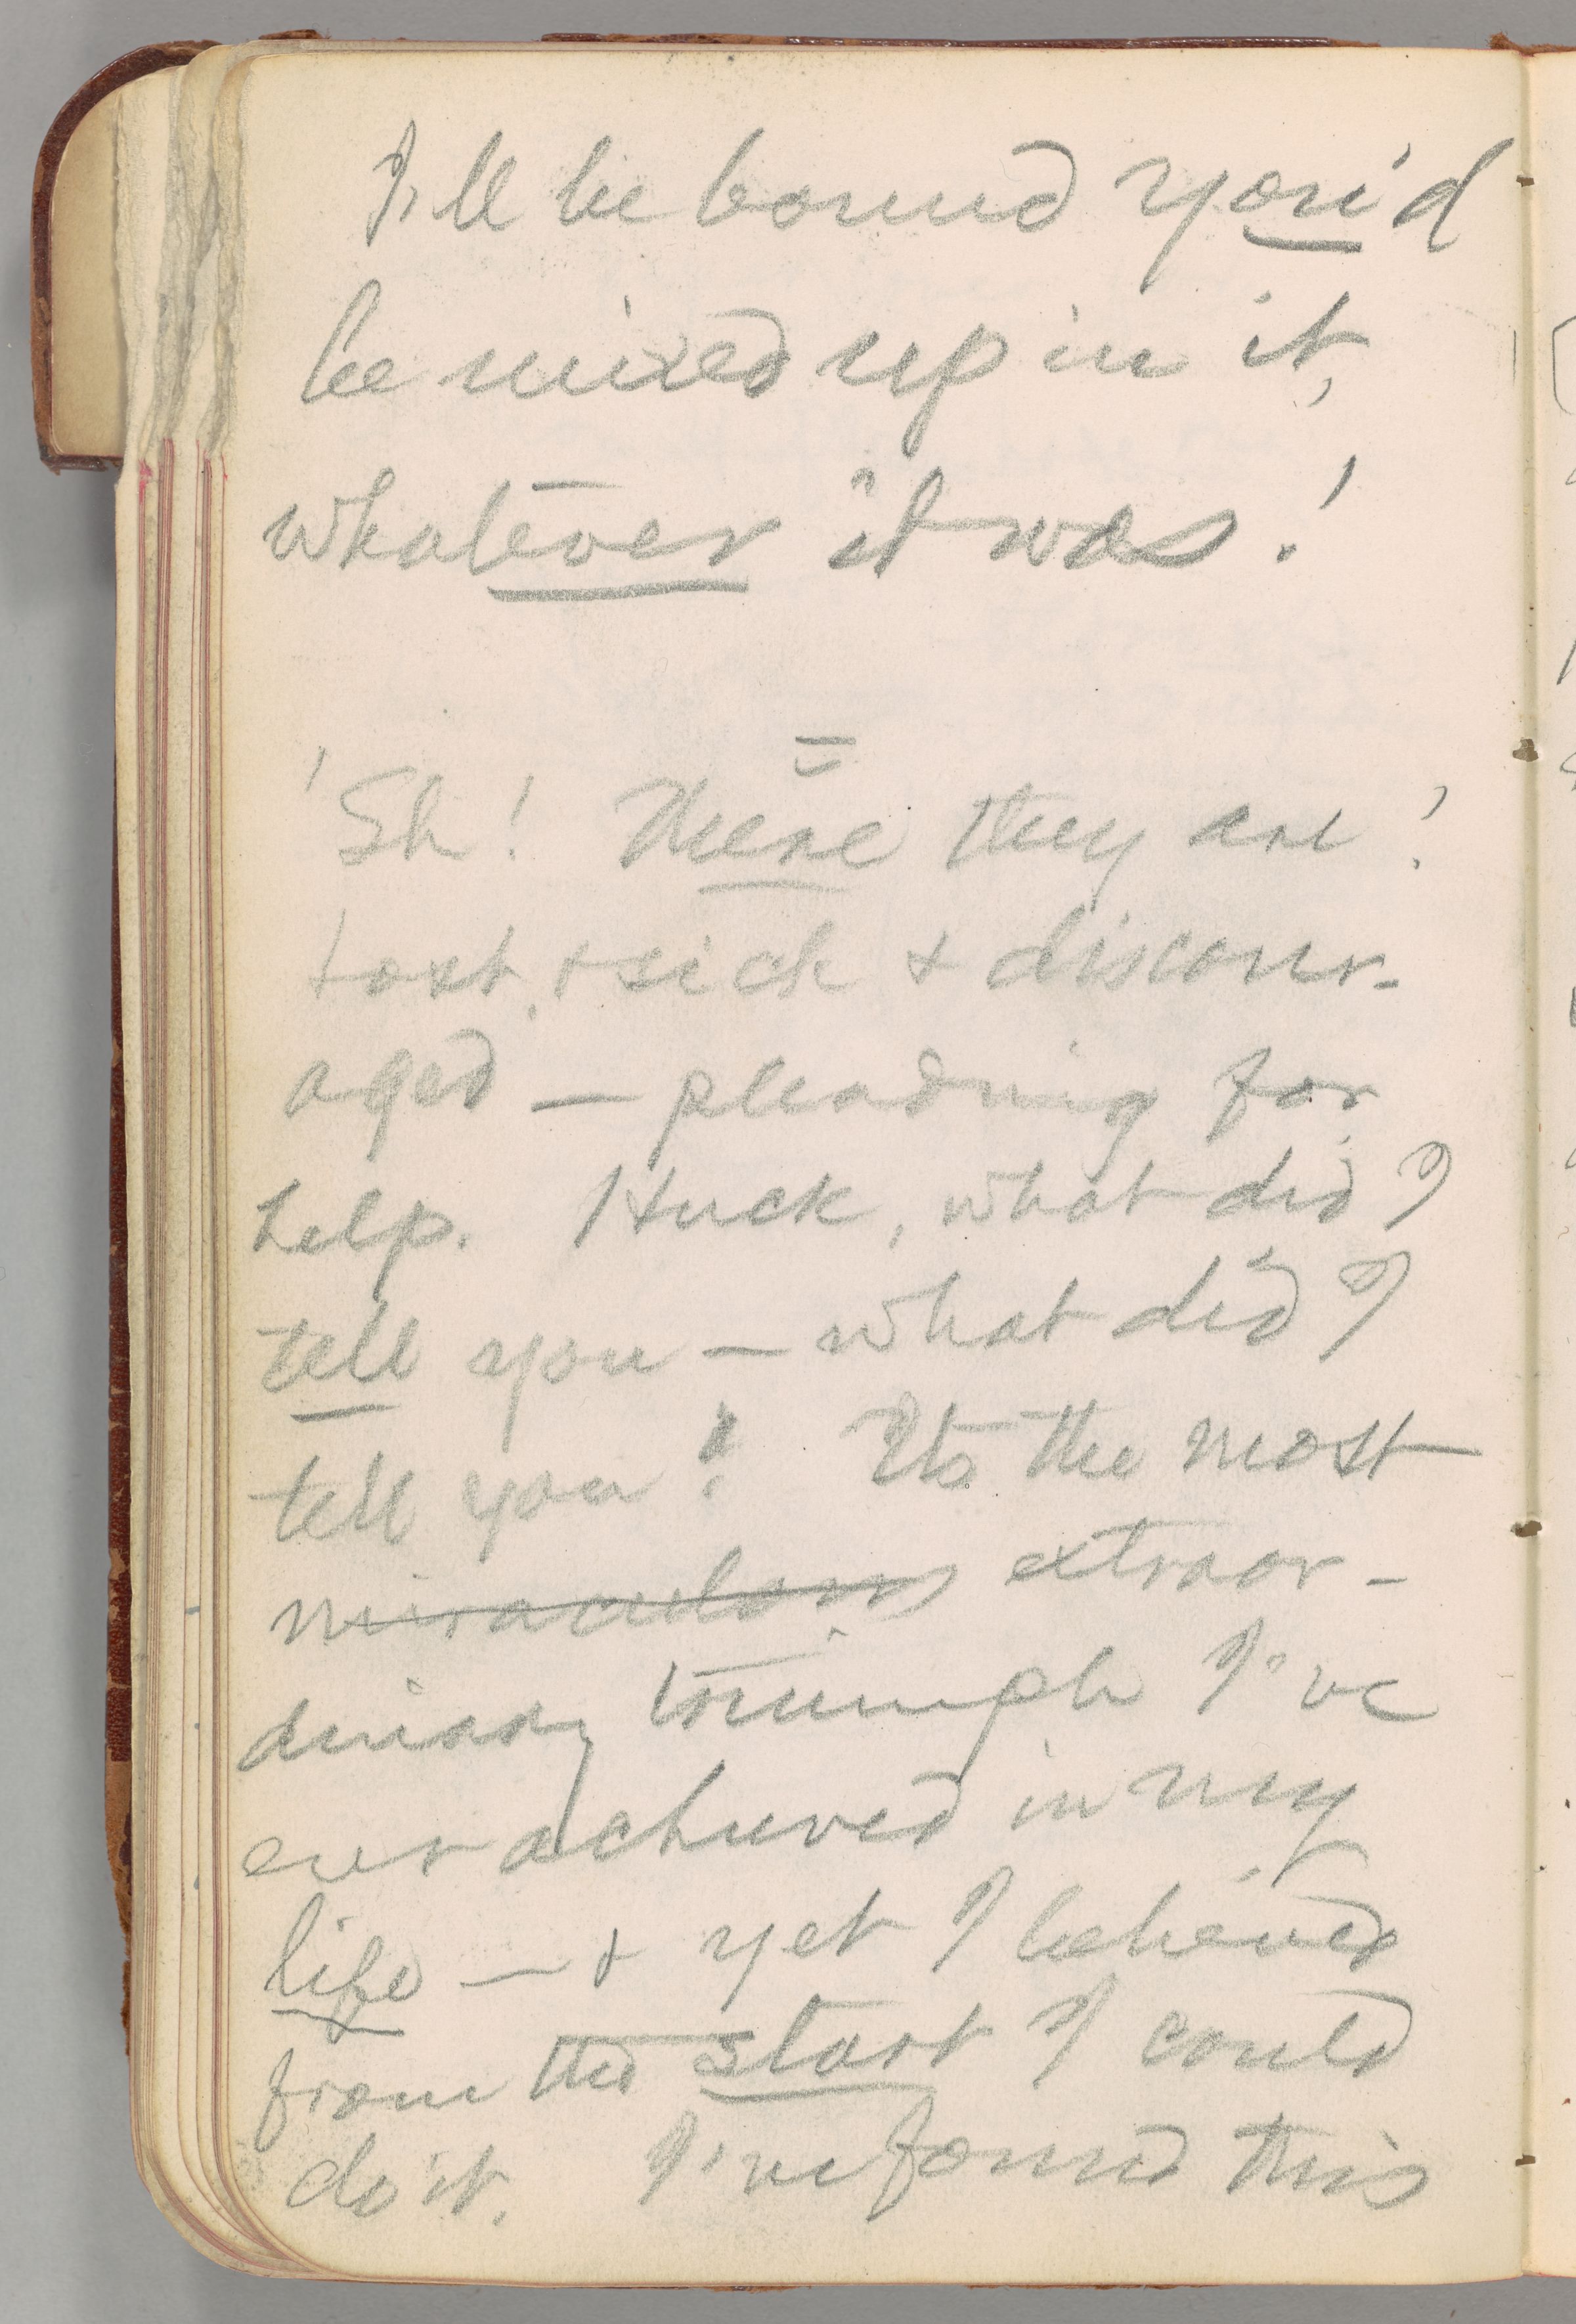 I'll be bound you'd
be mixed up in it,
whatever it was!
'Sh! There they are!
Lost, & sick & discour-
aged — pleading for
help. Huck, what did I
tell you — what did I
tell you! It's the most
miraculous extraor-
dinary triumph I've
ever achieved in my
life — & yet I believed
from the start I could
do it. I've found this